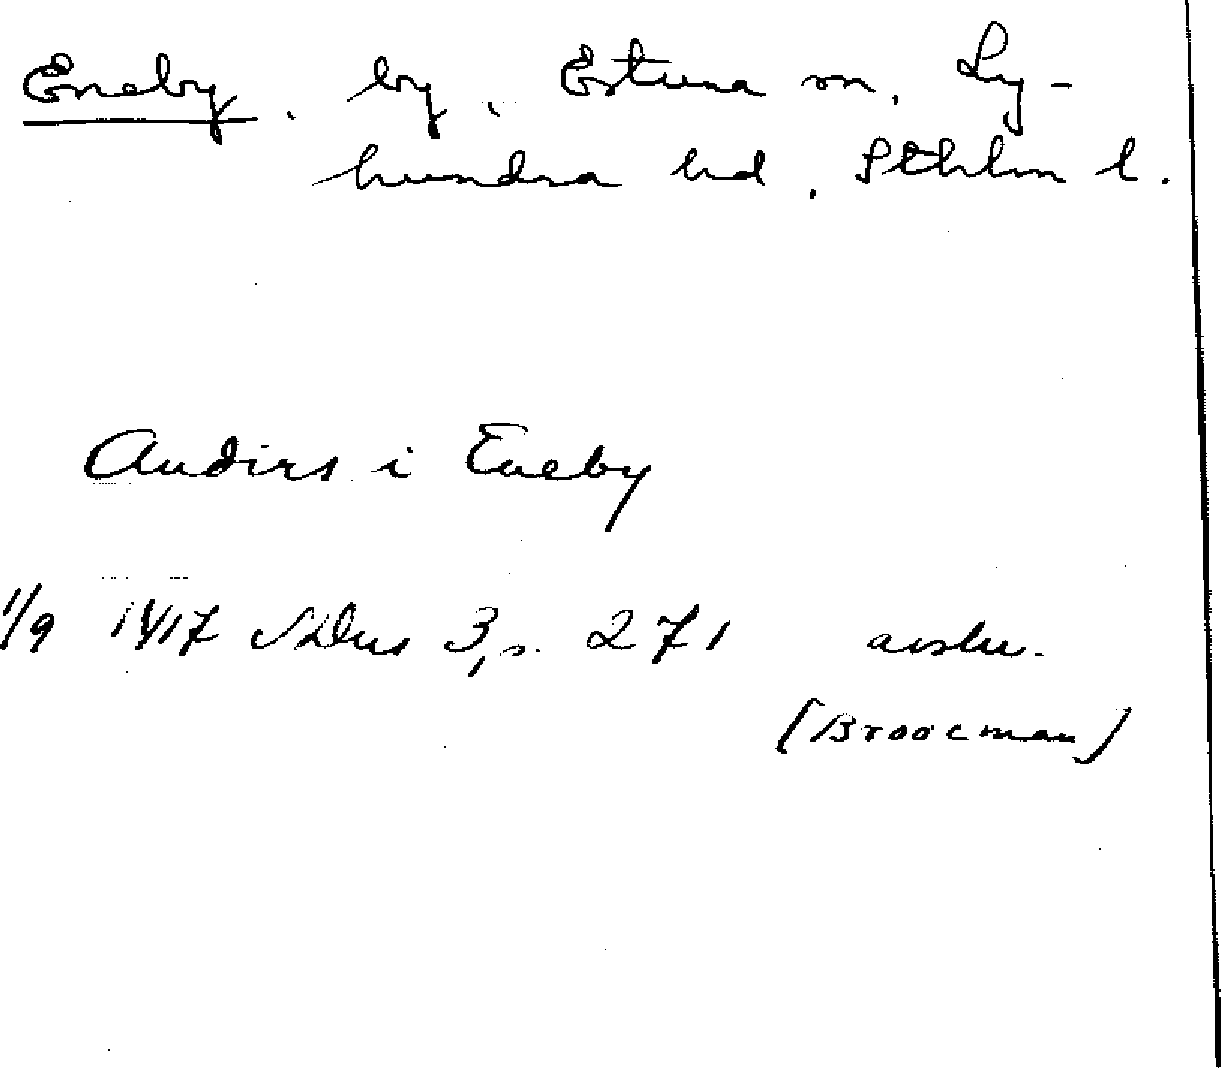 Eneby, by, Estuna sn, Ly-
hundra hd, Sthlm l.
Andirs i Eneby
1/9 1417 SDns 3, s. 271 avskr.
(Broocman)